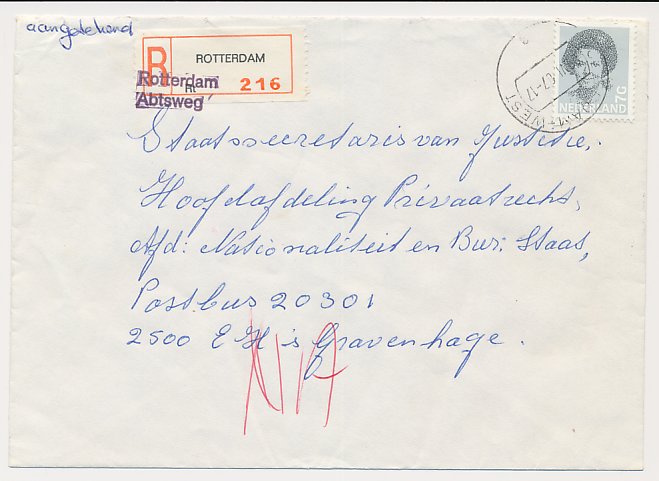 aangetekend
R
ROTTERDAM
Rt 216
Rotterdam
Abtsweg
NEDERLAND 7G
Staatssecretaris van Justitie,
Hoofdafdeling Privaatrecht,
Afd: Nationaliteit en Bur: Staat,
Postbus 20301
2500 EH 's Gravenhage.